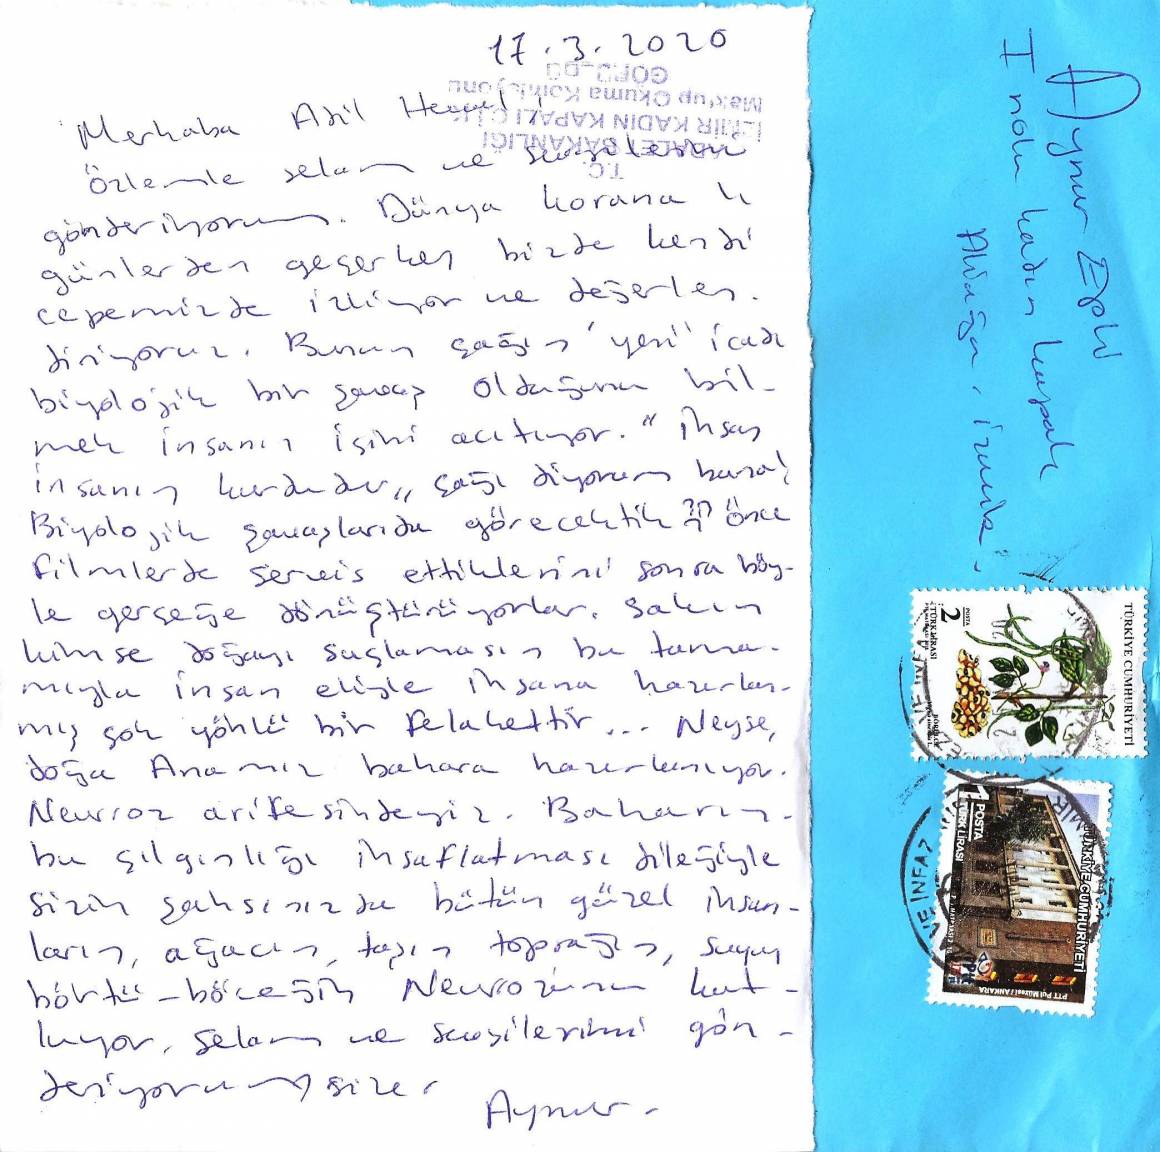 17.3.2020
T.C.
ADALET BAKANLIĞI
İZMİR KADIN KAPALI C.İ.K
Mektup Okuma Komisyonu
GÖRÜLDÜ
Merhaba Adil Heval!
Özlemle selam ve sevgilerimi
gönderiyorum. Dünya korana lı
günlerden geçerken bizde kendi
cepemizde izliyor ve değerlen.
diriyoruz. Bunun çağın "yeni" icadı
biyolojik bir savaş olduğunu bil-
mek insanın içini acıtıyor. "insan
insanın kurdudur" çağı diyorum buna!
Biyolojik savaşlarıda görecektik?! önce
filmlerde servis ettiklerini sonra böy-
le gerçeğe dönüştürüyorlar. Sakın
kimse doğayı suçlamasın bu tama-
mıyla insan eliyle insana hazırlan-
mış çok yönlü bir felakettir... Neyse,
doğa Anamız bahara hazırlanıyor.
Newroz arifesindeyiz. Baharın
bu çılgınlığı insaflatması dileğiyle
sizin şahsınızda bütün güzel insan-
ların, ağacın, taşın toprağın, suyun
börtü-böceğin Newrozunu kut-
luyor, selam ve sevgilerimi gön-
deriyorum size.
Aynur.
Aynur Epli
1 nolu kadın kapalı
Aliağa, izmir.
TÜRKİYE CUMHURİYETİ
2
POSTA
TÜRK LİRASI
BÖRÜLCE
TÜRKİYE CUMHURİYETİ
1
POSTA
TÜRK LİRASI
PTT Pul Müzesi / ANKARA
VE İNFAZ